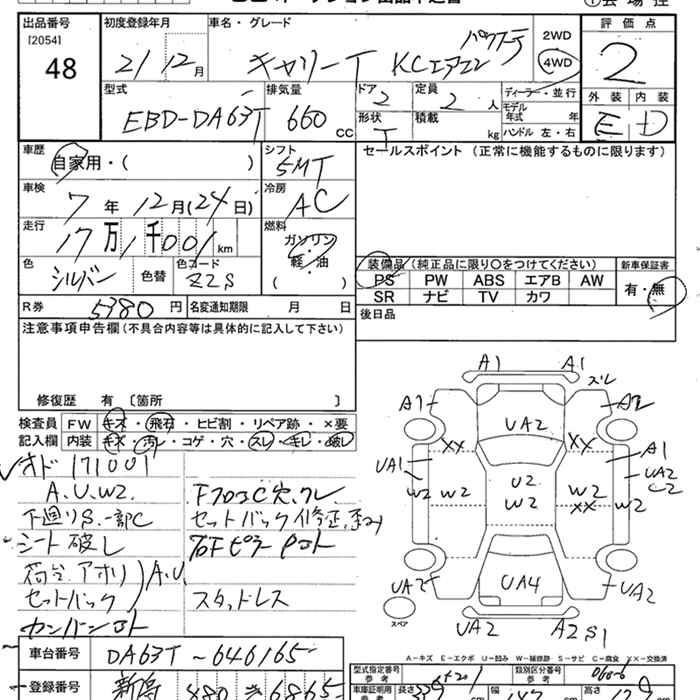 出品番号 初度登録年月 車名・グレード 評価点
[2054] パワステ 2WD
48 21/12月 キャリーT KCエアコン 4WD 2
型式 排気量 ドア 定員 ディーラー・並行 外装 内装
EBD-DA63T 660 cc 2 2人 モデル年式 年 E D
形状 T 積載 kg ハンドル 左・右
車歴 シフト セールスポイント (正常に機能するものに限ります)
自家用・( ) 5MT
車検 冷房
7年 12月(24日) AC
走行 燃料
17万1千001km ガソリン・軽・油
色 色替 色コード 装備品(純正品に限り○をつけてください) 新車保証書
シルバー Z2S ( ) PS PW ABS エアB AW 有・無
SR ナビ TV カワ
R券 5380円 名変通知期限 月 日 後日品
注意事項申告欄(不具合内容等は具体的に記入して下さい)
修復歴 有〔箇所 〕
検査員 FW キズ・飛石・ヒビ割・リペア跡・×要
記入欄 内装 キズ・汚レ・コゲ・穴・スレ・キレ・破レ
オド171001
A.U.W2.
下廻りS.一部C セットバック修正.歪
シート破レ
荷台アオリ)A.U
セットバック スタッドレス
A1 A1
ズレ
A1 A2
UA2
XX XX
UA1 A1
UA2
W2 W2 U2 W2 W2 W2
XX
UA2 UA4 UA2
スペア
UA2 A2S1
A-キズ E-エクボ U-凹み W-補修跡 S-サビ C-腐食 X-交換済
車台番号 DA63T-646165
型式指定番号 類別区分番号
参考 参考
登録番号 新潟 880 6865
長さ 339